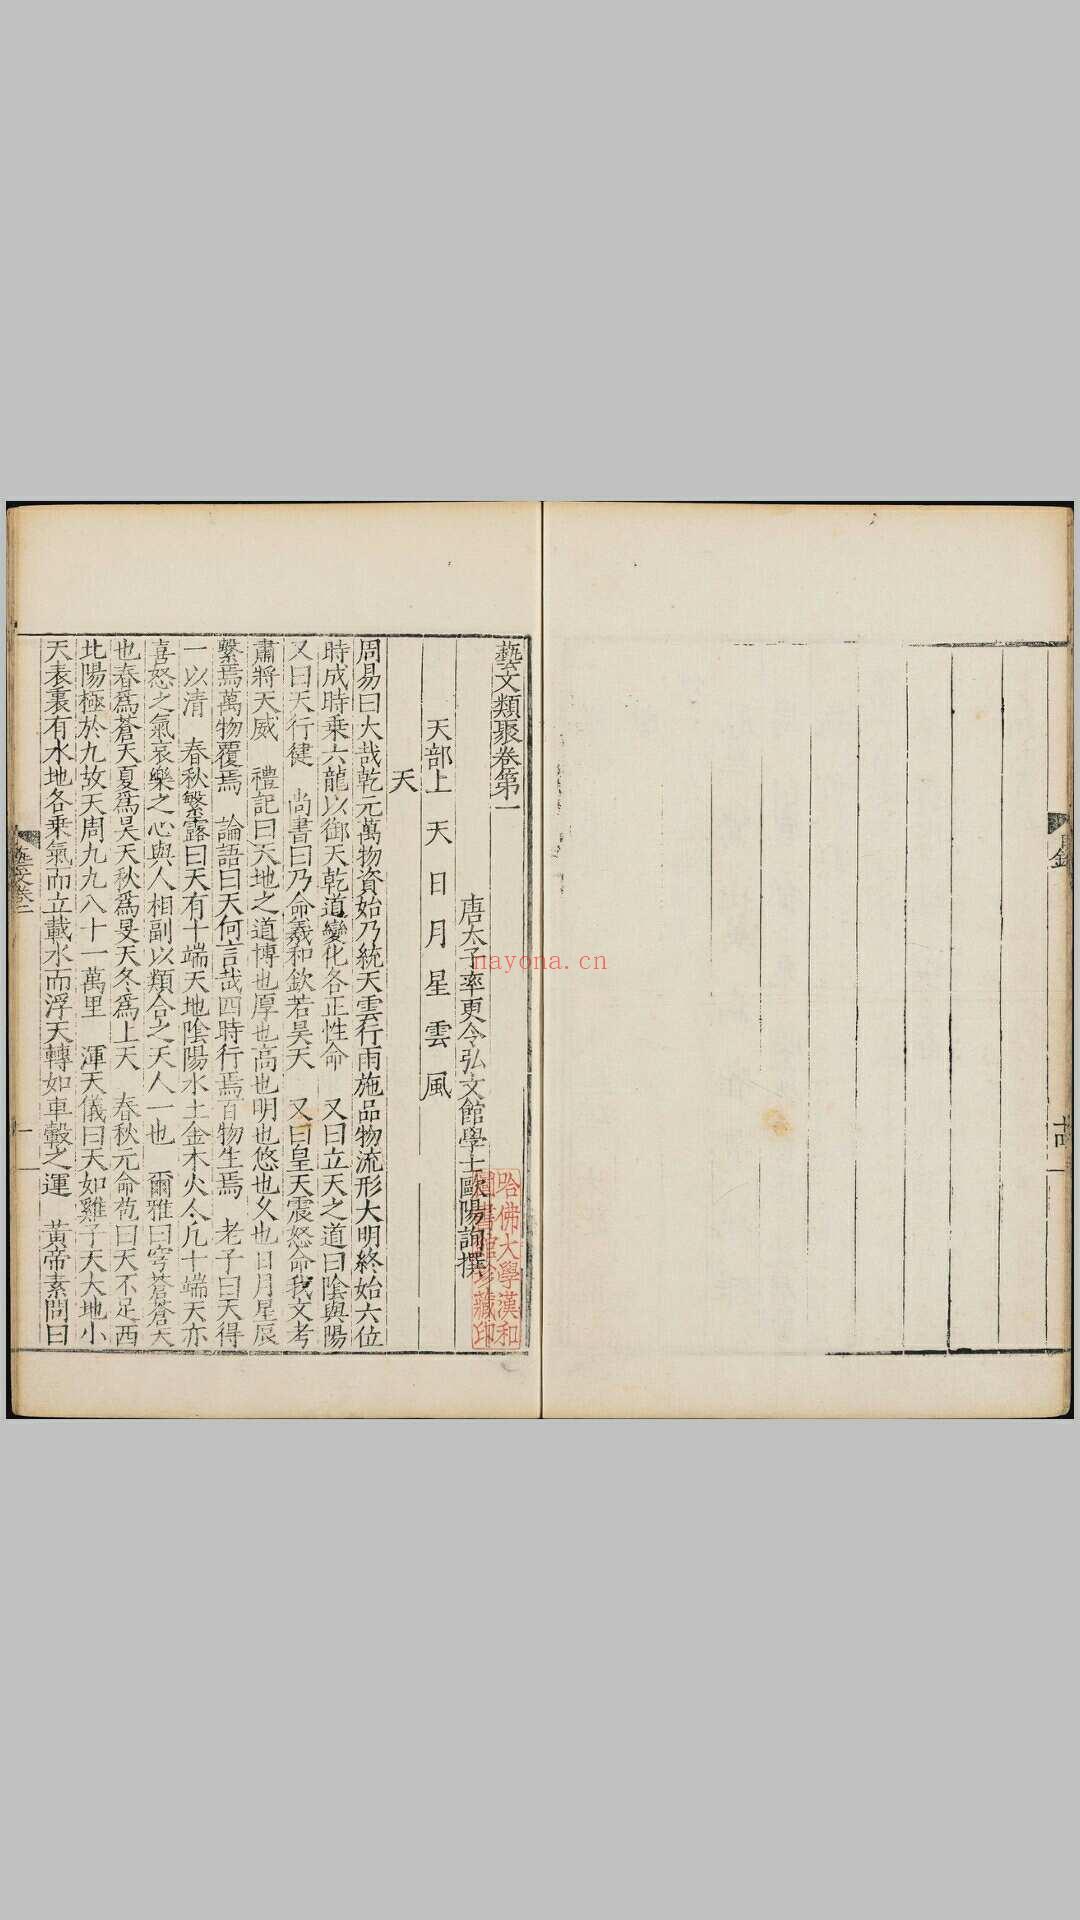 藝文類聚卷第一
唐太子率更令弘文館學士歐陽詢撰
天部上 天 日 月 星 雲 風
天
周易曰大哉乾元萬物資始乃統天雲行雨施品物流形大明終始六位
時成時乗六龍以御天乾道變化各正性命 又曰立天之道曰陰與陽
又曰天行健 尚書曰乃命羲和欽若昊天 又曰皇天震怒命我文考
肅將天威 禮記曰天地之道博也厚也高也明也悠也久也日月星辰
繫焉萬物覆焉 論語曰天何言哉四時行焉百物生焉 老子曰天得
一以清 春秋繁露曰天有十端天地陰陽水土金木火人凡十端天亦
喜怒之氣哀樂之心與人相副以類合之天人一也 爾雅曰穹蒼蒼天
也春爲蒼天夏爲昊天秋爲旻天冬爲上天 春秋元命苞曰天不足西
北陽極於九故天周九九八十一萬里 渾天儀曰天如雞子天大地小
天表裏有水地各乗氣而立載水而浮天轉如車轂之運 黄帝素問曰
哈佛大學漢和
圖書館珍藏印
nayona.cn
目錄
藝文卷一
一